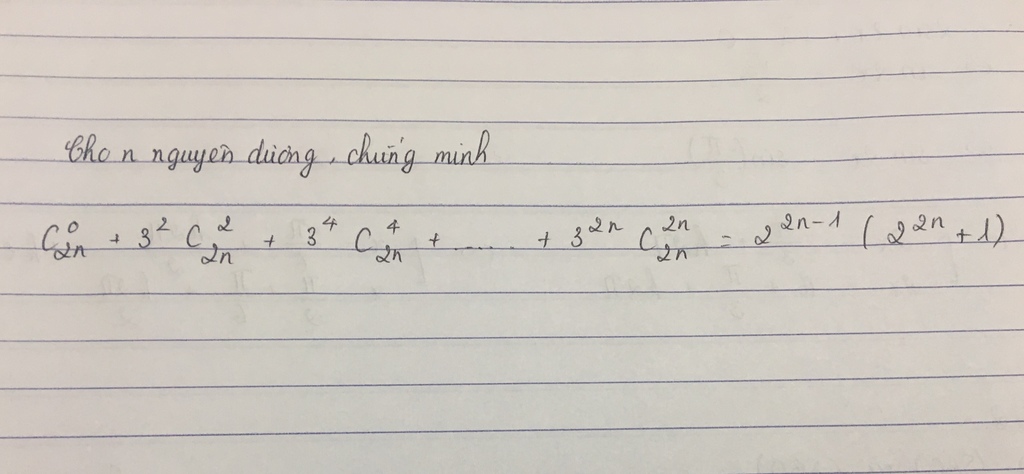 Cho n nguyên dương, chứng minh
C⁰₂ₙ + 3² C²₂ₙ + 3⁴ C⁴₂ₙ + ...... + 3²ⁿ C²ⁿ₂ₙ = 2²ⁿ⁻¹ (2²ⁿ + 1)